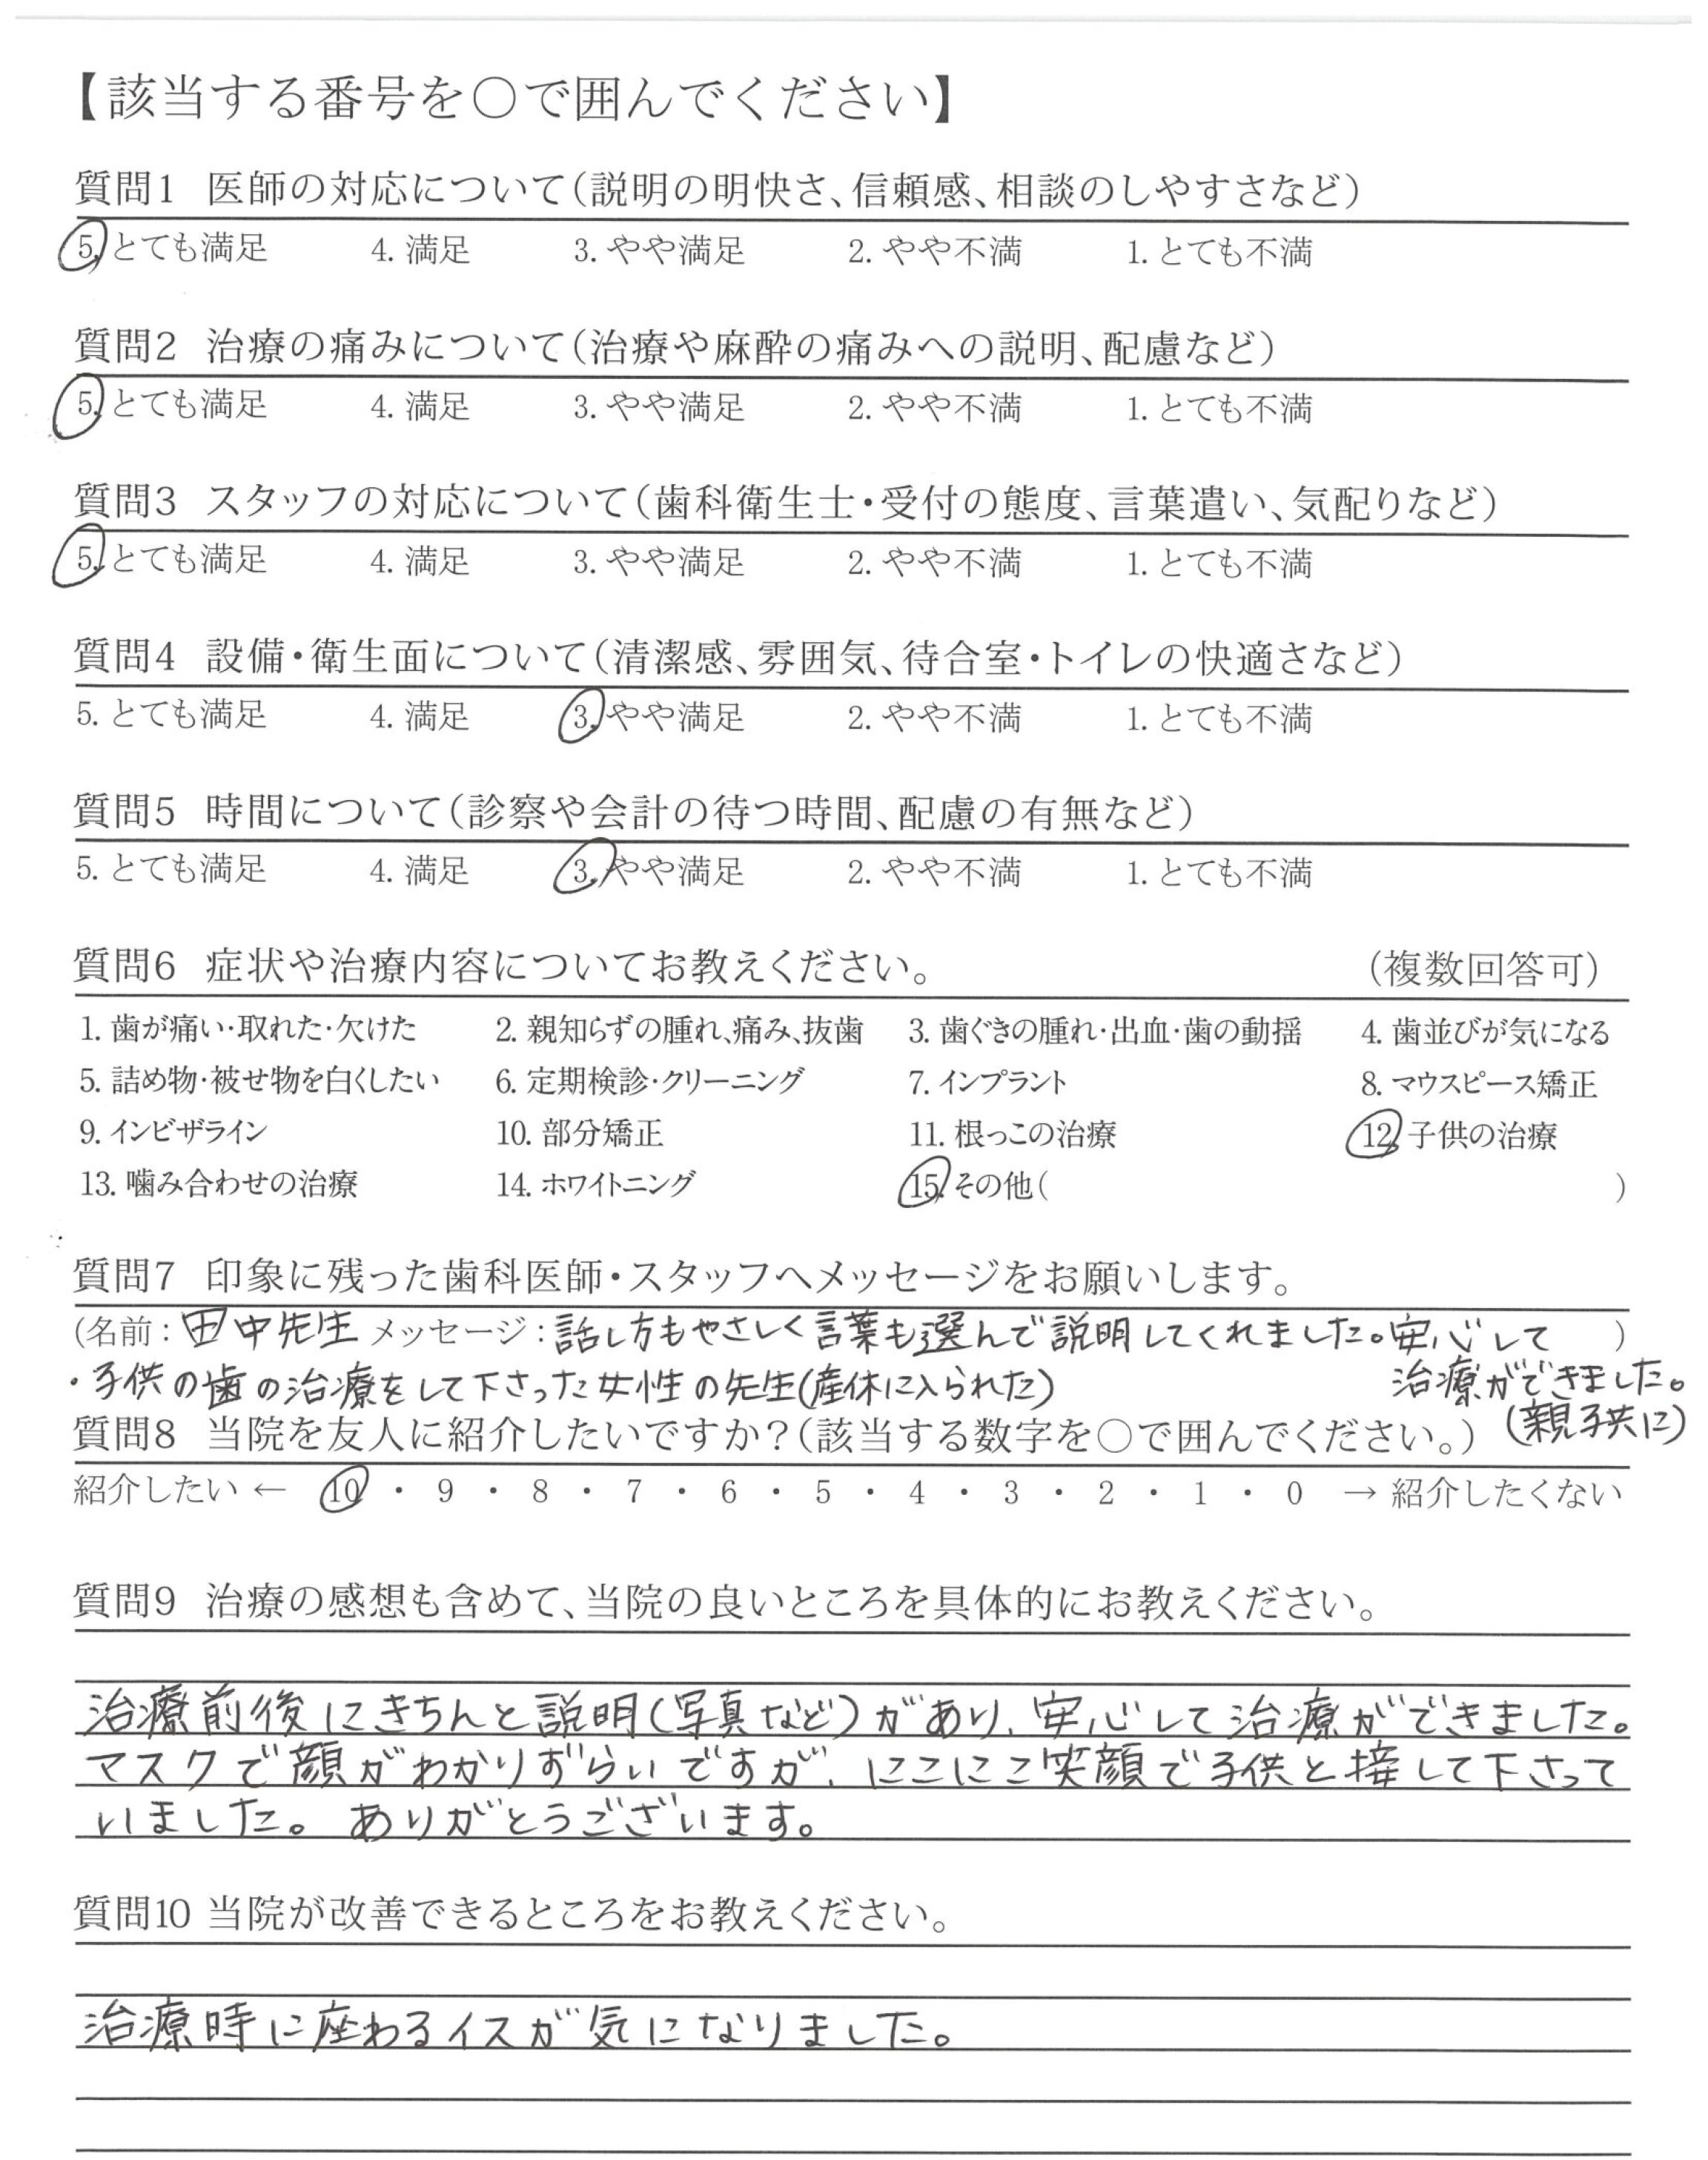 【該当する番号を○で囲んでください】
質問1 医師の対応について(説明の明快さ、信頼感、相談のしやすさなど)
5. とても満足 4. 満足 3. やや満足 2. やや不満 1. とても不満
質問2 治療の痛みについて(治療や麻酔の痛みへの説明、配慮など)
5. とても満足 4. 満足 3. やや満足 2. やや不満 1. とても不満
質問3 スタッフの対応について(歯科衛生士・受付の態度、言葉遣い、気配りなど)
5. とても満足 4. 満足 3. やや満足 2. やや不満 1. とても不満
質問4 設備・衛生面について(清潔感、雰囲気、待合室・トイレの快適さなど)
5. とても満足 4. 満足 3. やや満足 2. やや不満 1. とても不満
質問5 時間について(診察や会計の待つ時間、配慮の有無など)
5. とても満足 4. 満足 3. やや満足 2. やや不満 1. とても不満
質問6 症状や治療内容についてお教えください。 (複数回答可)
1. 歯が痛い・取れた・欠けた 2. 親知らずの腫れ、痛み、抜歯 3. 歯ぐきの腫れ・出血・歯の動揺 4. 歯並びが気になる
5. 詰め物・被せ物を白くしたい 6. 定期検診・クリーニング 7. インプラント 8. マウスピース矯正
9. インビザライン 10. 部分矯正 11. 根っこの治療 12. 子供の治療
13. 噛み合わせの治療 14. ホワイトニング 15. その他( )
質問7 印象に残った歯科医師・スタッフへメッセージをお願いします。
(名前：田中先生 メッセージ：話し方もやさしく言葉も選んで説明してくれました。安心して )
治療ができました。
(親子共に)
・子供の歯の治療をして下さった女性の先生(産休に入られた)
質問8 当院を友人に紹介したいですか？(該当する数字を○で囲んでください。)
紹介したい ← 10 ・ 9 ・ 8 ・ 7 ・ 6 ・ 5 ・ 4 ・ 3 ・ 2 ・ 1 ・ 0 → 紹介したくない
質問9 治療の感想も含めて、当院の良いところを具体的にお教えください。
治療前後にきちんと説明(写真など)があり、安心して治療ができました。
マスクで顔がわかりずらいですが、にこにこ笑顔で子供と接して下さって
いました。ありがとうございます。
質問10 当院が改善できるところをお教えください。
治療時に座わるイスが気になりました。